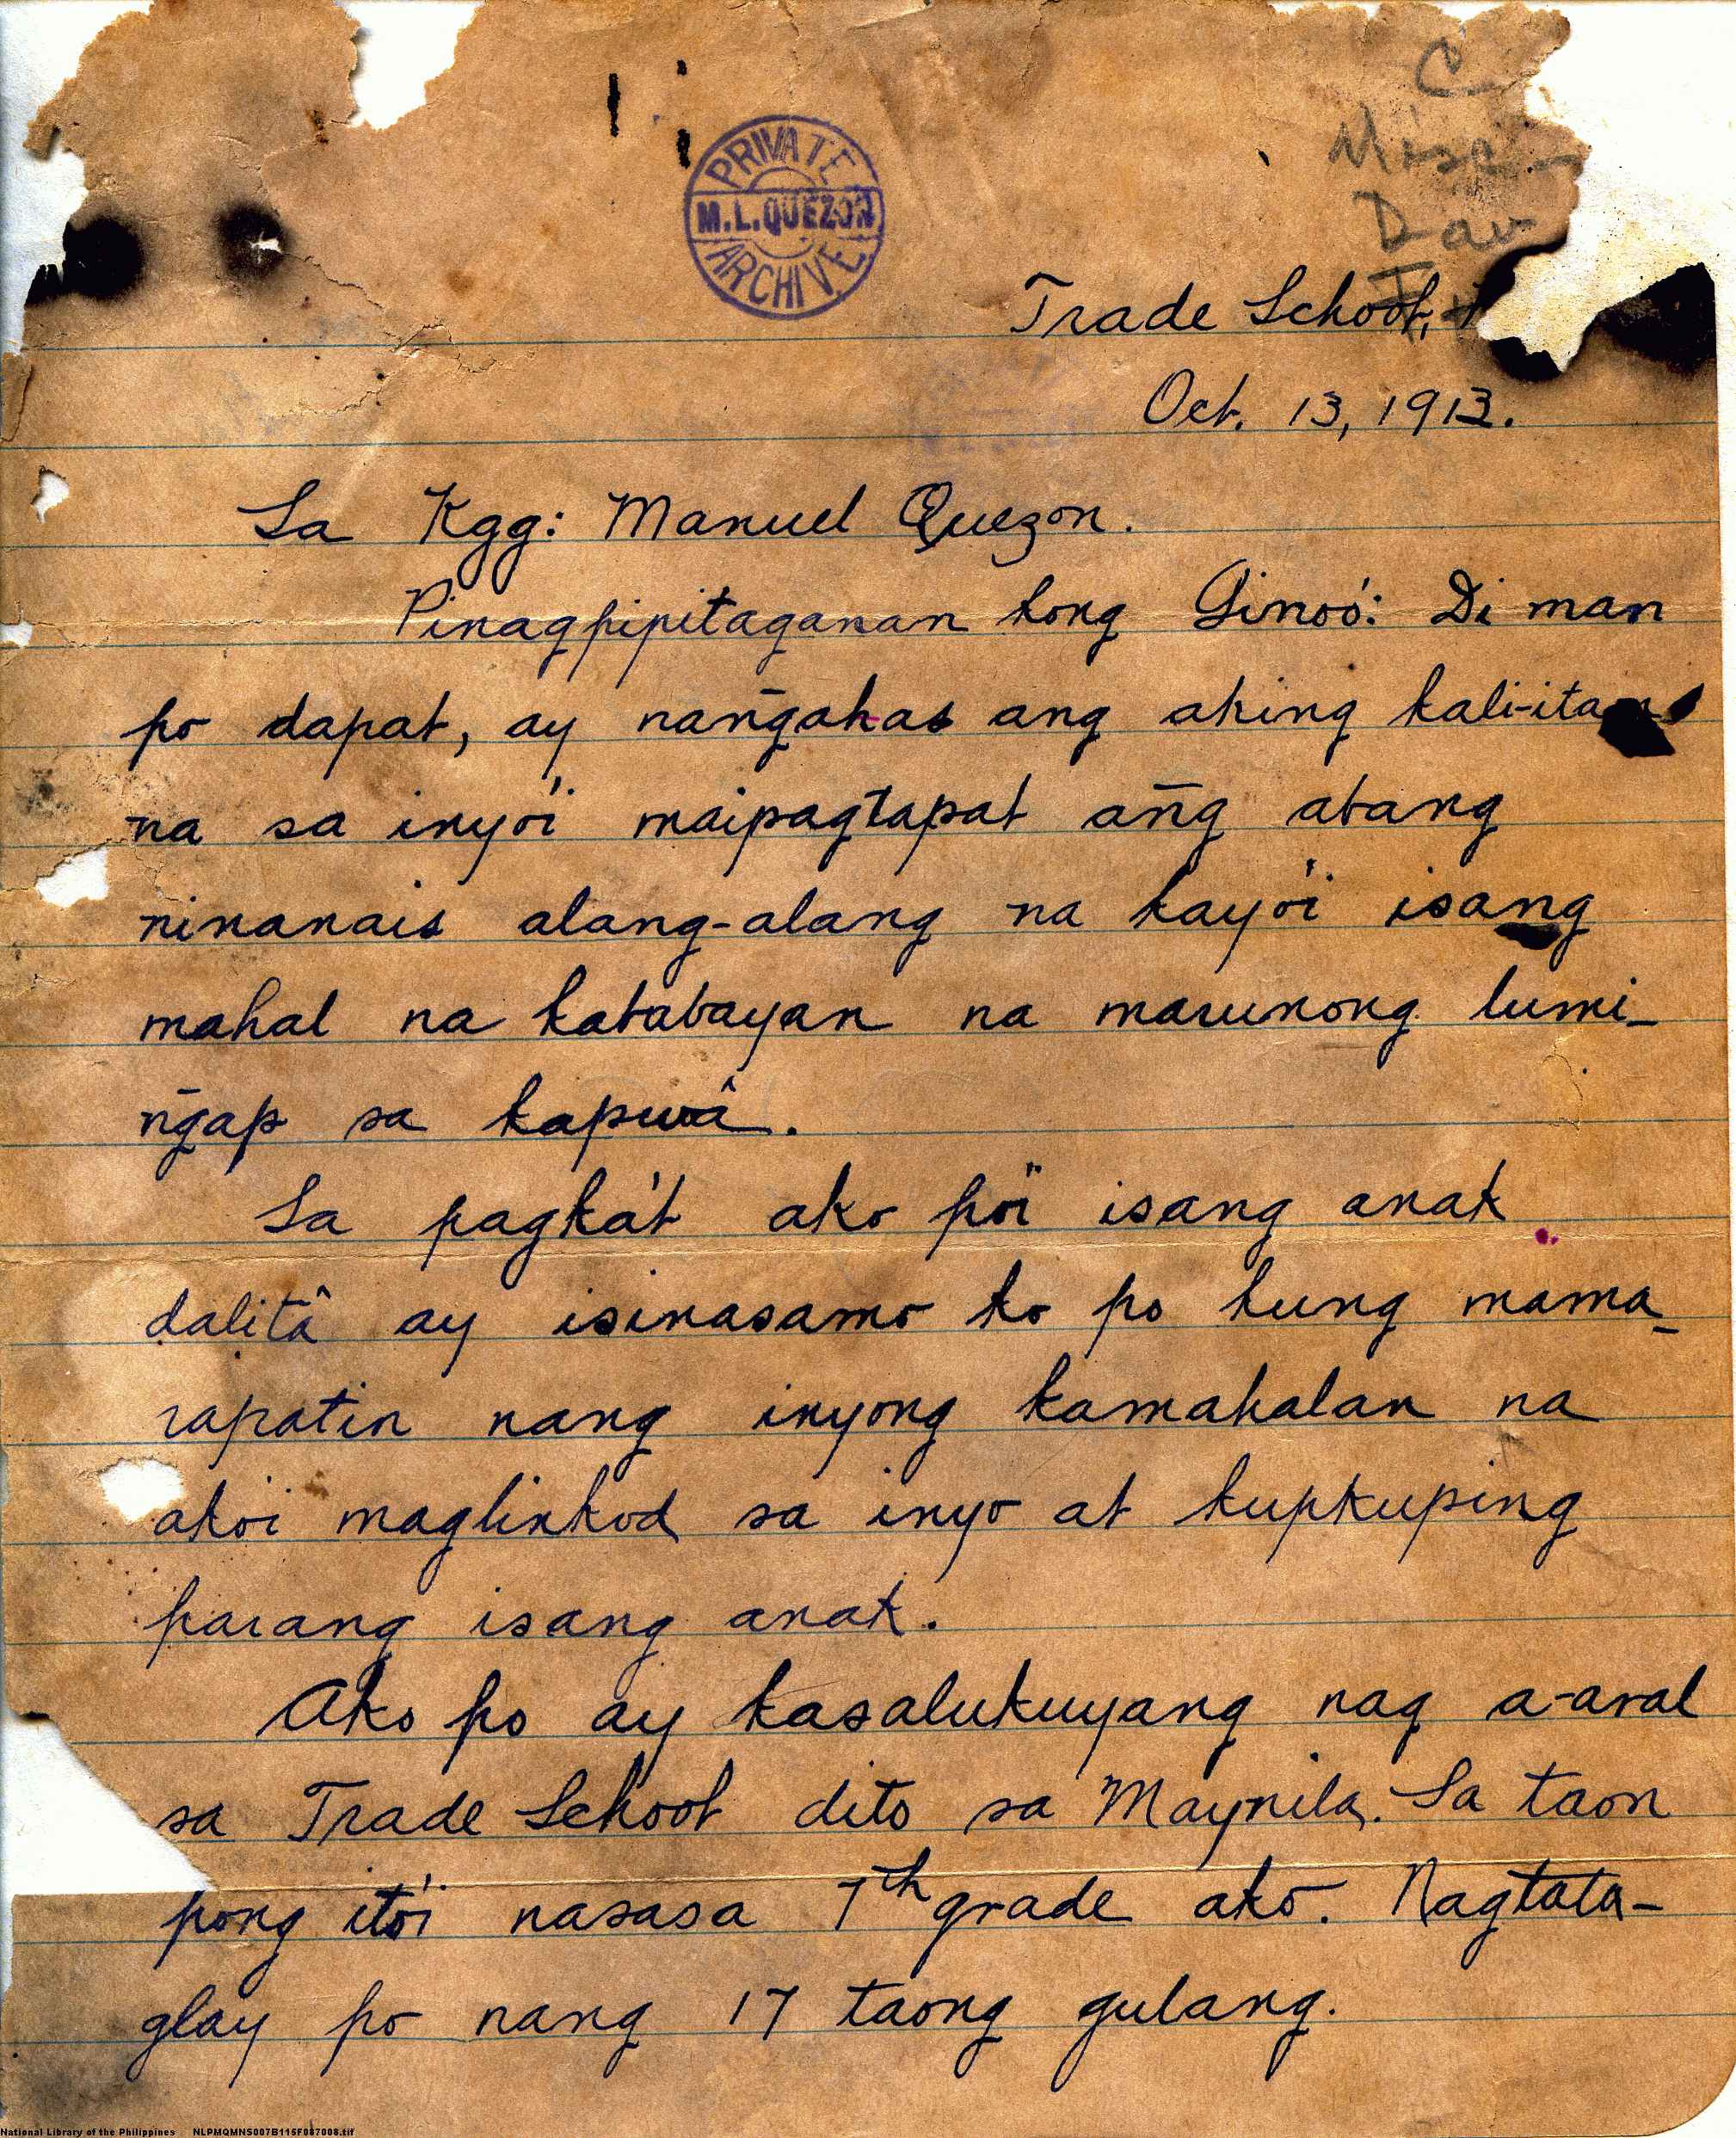 C
Misc
Dav
PRIVATE
M.L.QUEZON
ARCHIVE
Trade School,
Oct. 13, 1913.
Sa Kgg: Manuel Quezon.
Pinagpipitaganan kong Ginoó: Di man
po dapat, ay nan̄gahas ang aking kali-itan
na sa inyo'i maipagtapat an̄g abang
ninanais alang-alang na kayo'i isang
mahal na kababayan na marunong lumi-
n̄gap sa kapwâ.
Sa pagka't ako po'i isang anak
dalitâ ay isinasamo ko po kung mama-
rapatin nang inyong kamahalan na
akoi maglinkod sa inyo at kupkuping
parang isang anak.
Ako po ay kasalukuyang nag a-aral
sa Trade School dito sa Maynila. Sa taon
pong ito'i nasasa 7th grade ako. Nagtata-
glay po nang 17 taong gulang.
National Library of the Philippines NLPMQMNS007B115F087008.tif